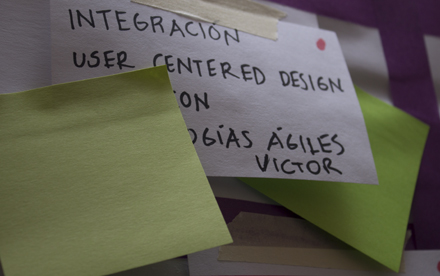 INTEGRACIÓN
USER CENTERED DESIGN
ÁGILES
VICTOR